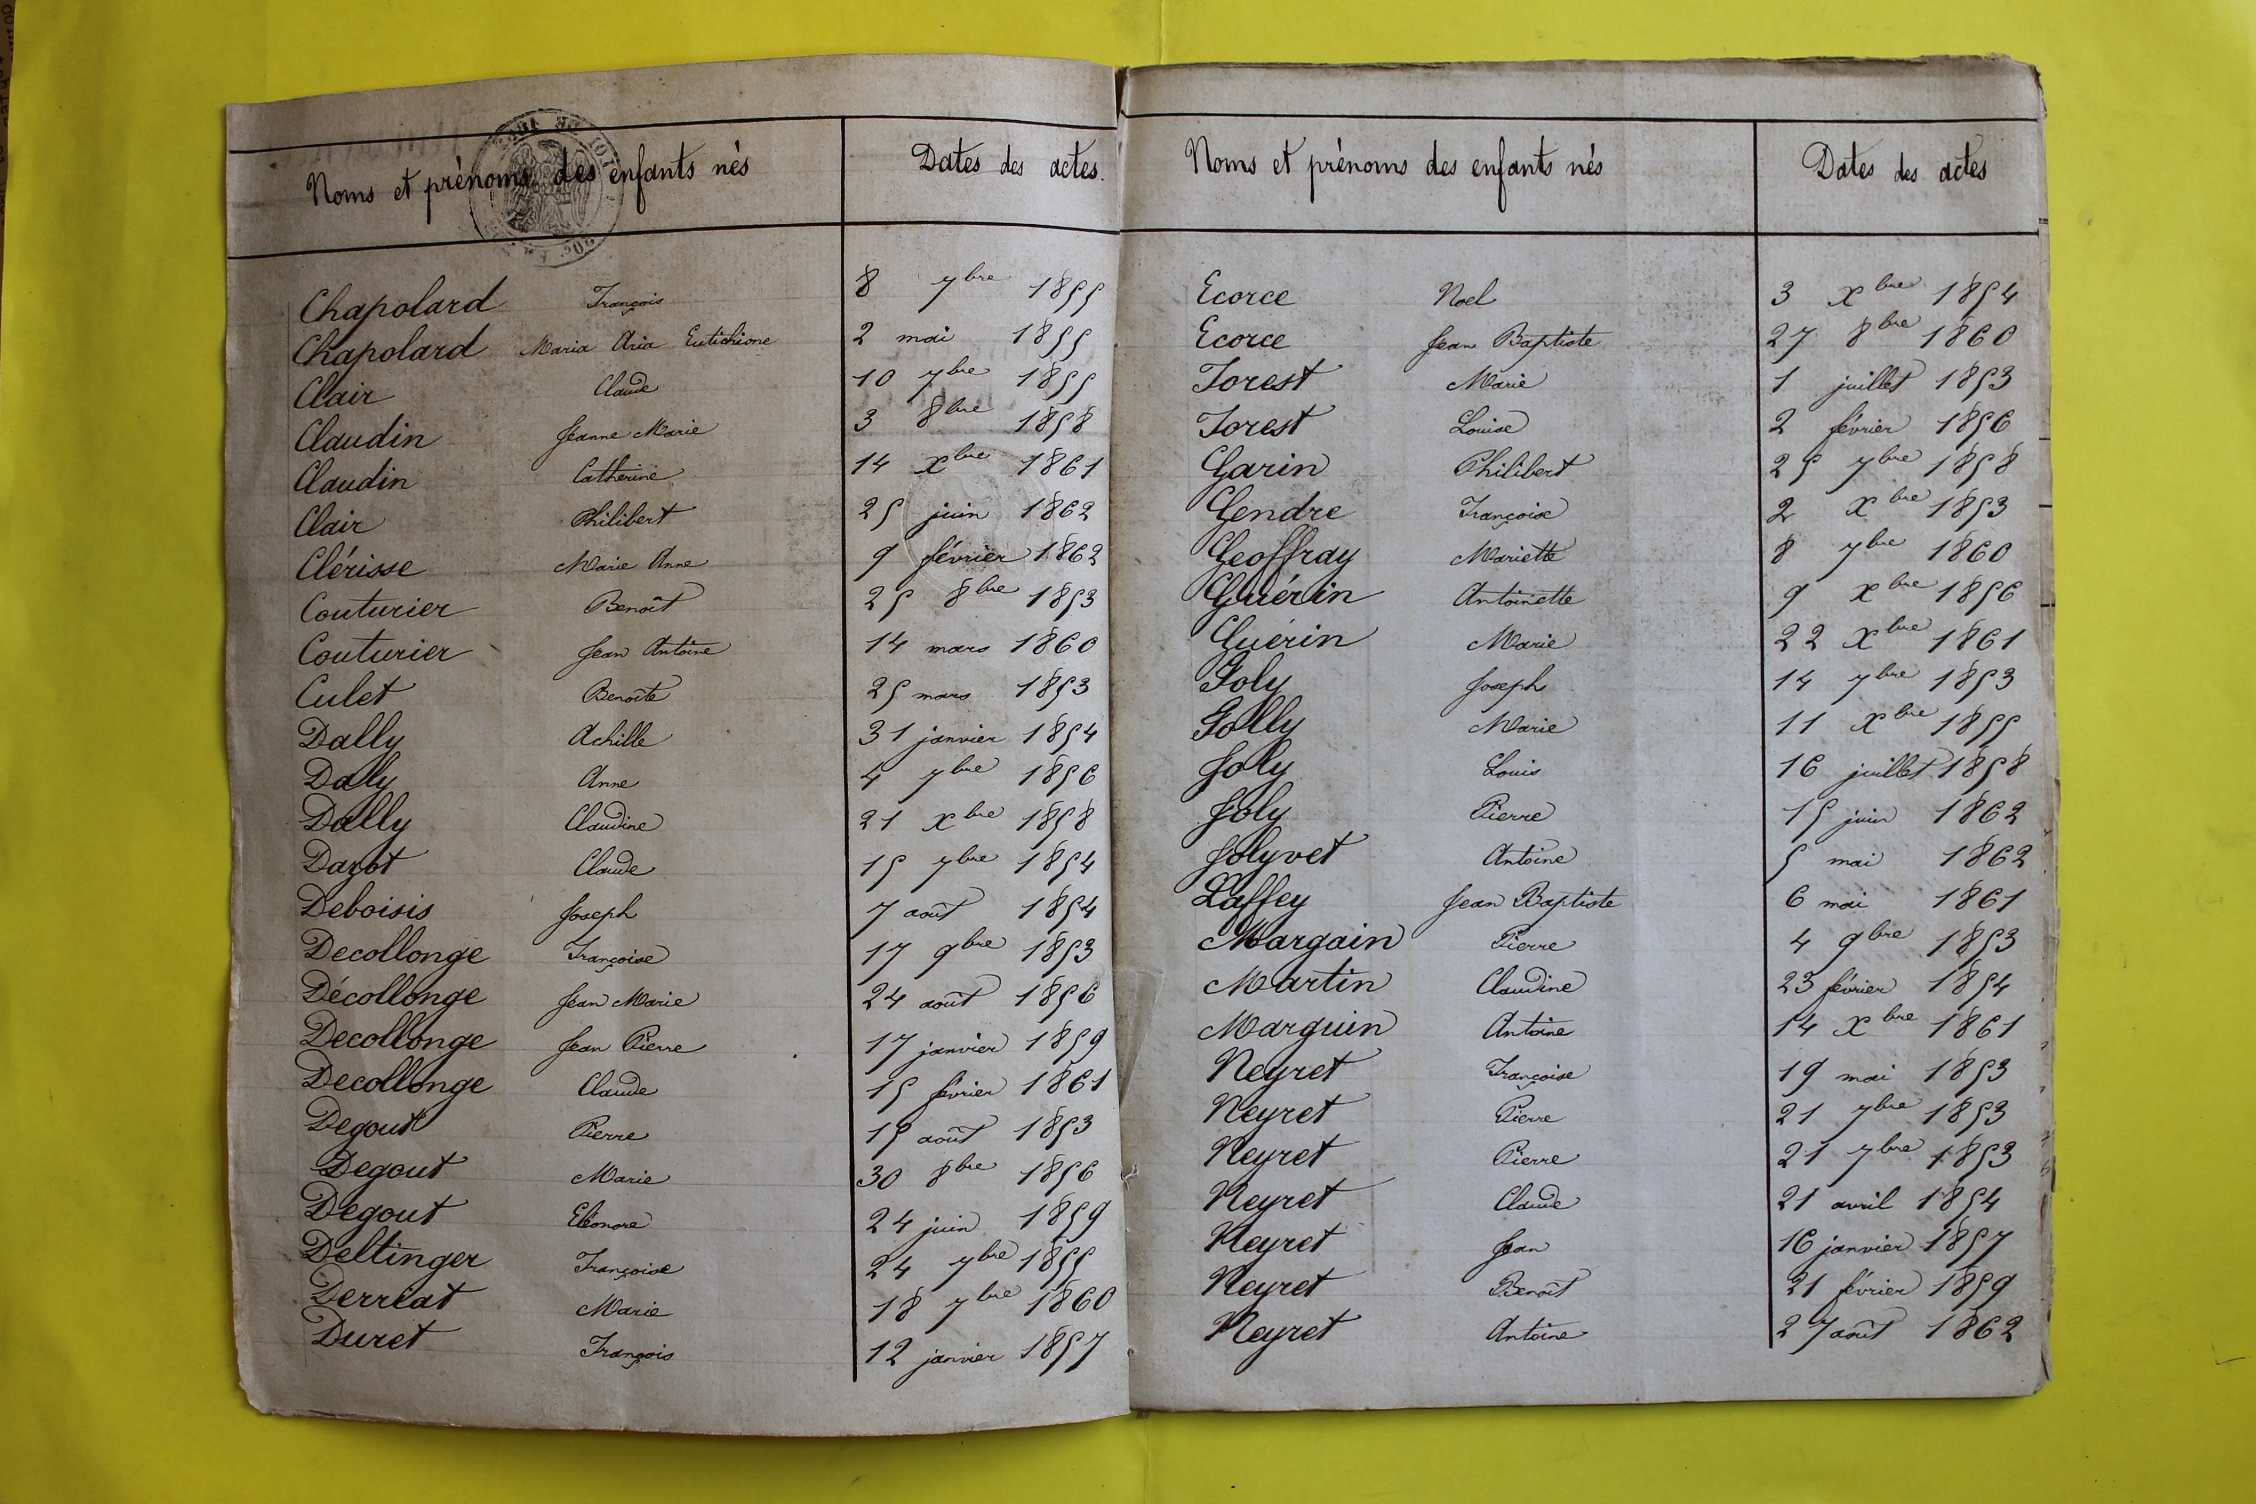 Noms et prénoms des enfants nés Dates des actes.
Chapolard François 8 7bre 1855
Chapolard Maria Aria Eutichione 2 mai 1855
Clair Claude 10 7bre 1855
Claudin Jeanne Marie 3 8bre 1858
Claudin Catherine 14 Xbre 1861
Clair Philibert 25 juin 1862
Clérisse Marie Anne 9 février 1862
Couturier Benoît 25 8bre 1853
Couturier Jean Antoine 14 mars 1860
Culet Benoîte 25 mars 1853
Dally Achille 31 janvier 1854
Daly Anne 4 7bre 1856
Dally Claudine 21 Xbre 1858
Dazot Claude 15 7bre 1854
Deboisis Joseph 7 août 1854
Decollonge Françoise 17 9bre 1853
Décollonge Jean Marie 24 août 1856
Decollonge Jean Pierre 17 janvier 1859
Decollonge Claude 15 février 1861
Degout Pierre 15 août 1853
Degout Marie 30 8bre 1856
Degout Eléonore 24 juin 1859
Deltinger Françoise 24 7bre 1855
Derreat Marie 18 7bre 1860
Duret François 12 janvier 1857
Noms et prénoms des enfants nés Dates des actes
Ecorce Noel 3 Xbre 1854
Ecorce Jean Baptiste 27 8bre 1860
Forest Marie 1 juillet 1853
Forest Louise 2 février 1856
Garin Philibert 25 7bre 1858
Gendre Françoise 2 Xbre 1853
Geoffray Mariette 8 7bre 1860
Guérin Antoinette 9 Xbre 1856
Guérin Marie 22 Xbre 1861
Joly Joseph 14 7bre 1853
Jolly Marie 11 Xbre 1855
Joly Louis 16 juillet 1858
Joly Pierre 15 juin 1862
Jolyvet Antoine 5 mai 1862
Laffey Jean Baptiste 6 mai 1861
Margain Pierre 4 9bre 1853
Martin Claudine 23 février 1854
Marguin Antoine 14 Xbre 1861
Neyret Françoise 19 mai 1853
Neyret Pierre 21 7bre 1853
Neyret Pierre 21 7bre 1853
Neyret Claude 21 avril 1854
Neyret Jean 16 janvier 1857
Neyret Benoît 21 février 1859
Neyret Antoine 27 août 1862